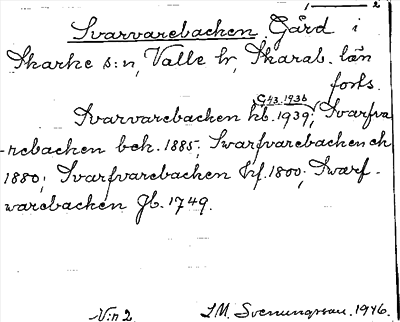 1 — 2
Svarvarebacken Gård i
Skarke s:n, Valle hr, Skarab. län
forts.
G43.1936
Svarvarebacken hb. 1939; Svarfva-
rebacken bek. 1885; Swarfvarebacken ek
1880; Svarfvarebacken hf. 1800; Swarf-
warebacken Jb. 1749.
N:o 2. I.M. Svenungsson. 1946.